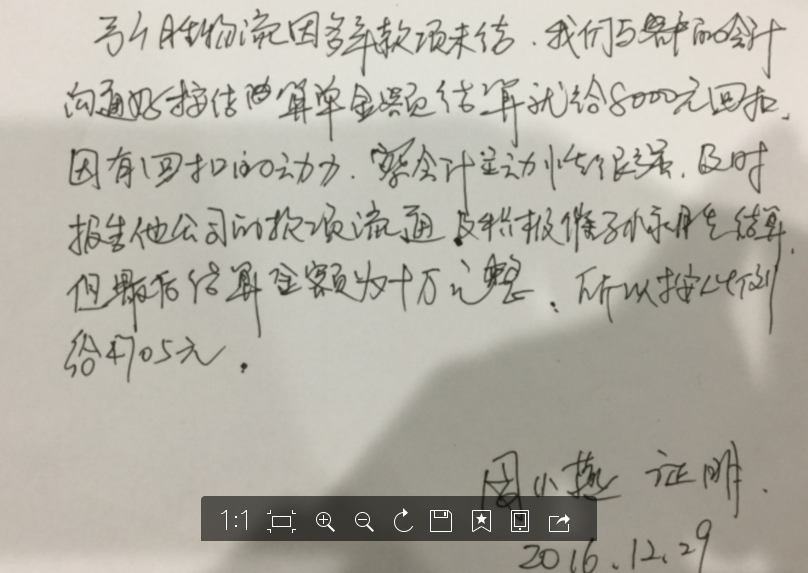 引胜物流因多年款项未结,我们与客户的会计
沟通好按结算单金额结算就给8000元回扣,
因有回扣的动力,会计主动性很强,及时
报告他公司的款项流通,及积极催结算,
但最后结算金额为十万元整,所以按比例
给4705元.
周小燕 证明.
1:1
2016.12.29